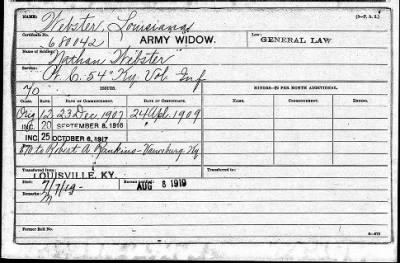 NAME: (3-P. A. I.)
Webster, Louisiana
Certificate No. ARMY WIDOW. Law: GENERAL LAW
680042
Name of Soldier:
Nathan Webster
Service:
C. 54" Ky Vol Inf
70 ISSUES. MINORS—$2 PER MONTH ADDITIONAL.
CLASS. RATE. DATE OF COMMENCEMENT. DATE OF CERTIFICATE. NAME. COMMENCEMENT. EXPIRATION.
Orig 12 23 Dec 1907 24 Apl 1909
INC. 20 SEPTEMBER 8, 1916 "
INC 25 OCTOBER 6, 1917
to Robert A Rankins - Ky
Transferred from: Transferred to:
LOUISVILLE, KY.
Died: 7/7/19- Bureau notified: AUG 8 1919
Remarks:
M
Former Roll No.